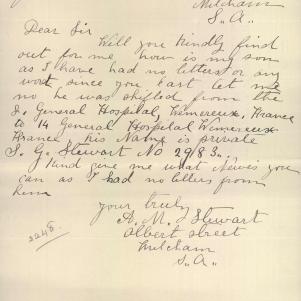 Mitcham
S.A.
Dear Sir
Will you kindly find
out for me how is my son
as I have had no letters or any
word since you last let me
no he was shifted from the
2. General Hospital, Wimereux, France
to 14 General Hospital Wimereux
France his Name is private
S. G. Stewart No 2983..
I kind give me what Newes you
can as I had no letters from
him
your truly
A. M. Stewart
Albert street
Mitcham
S.A.